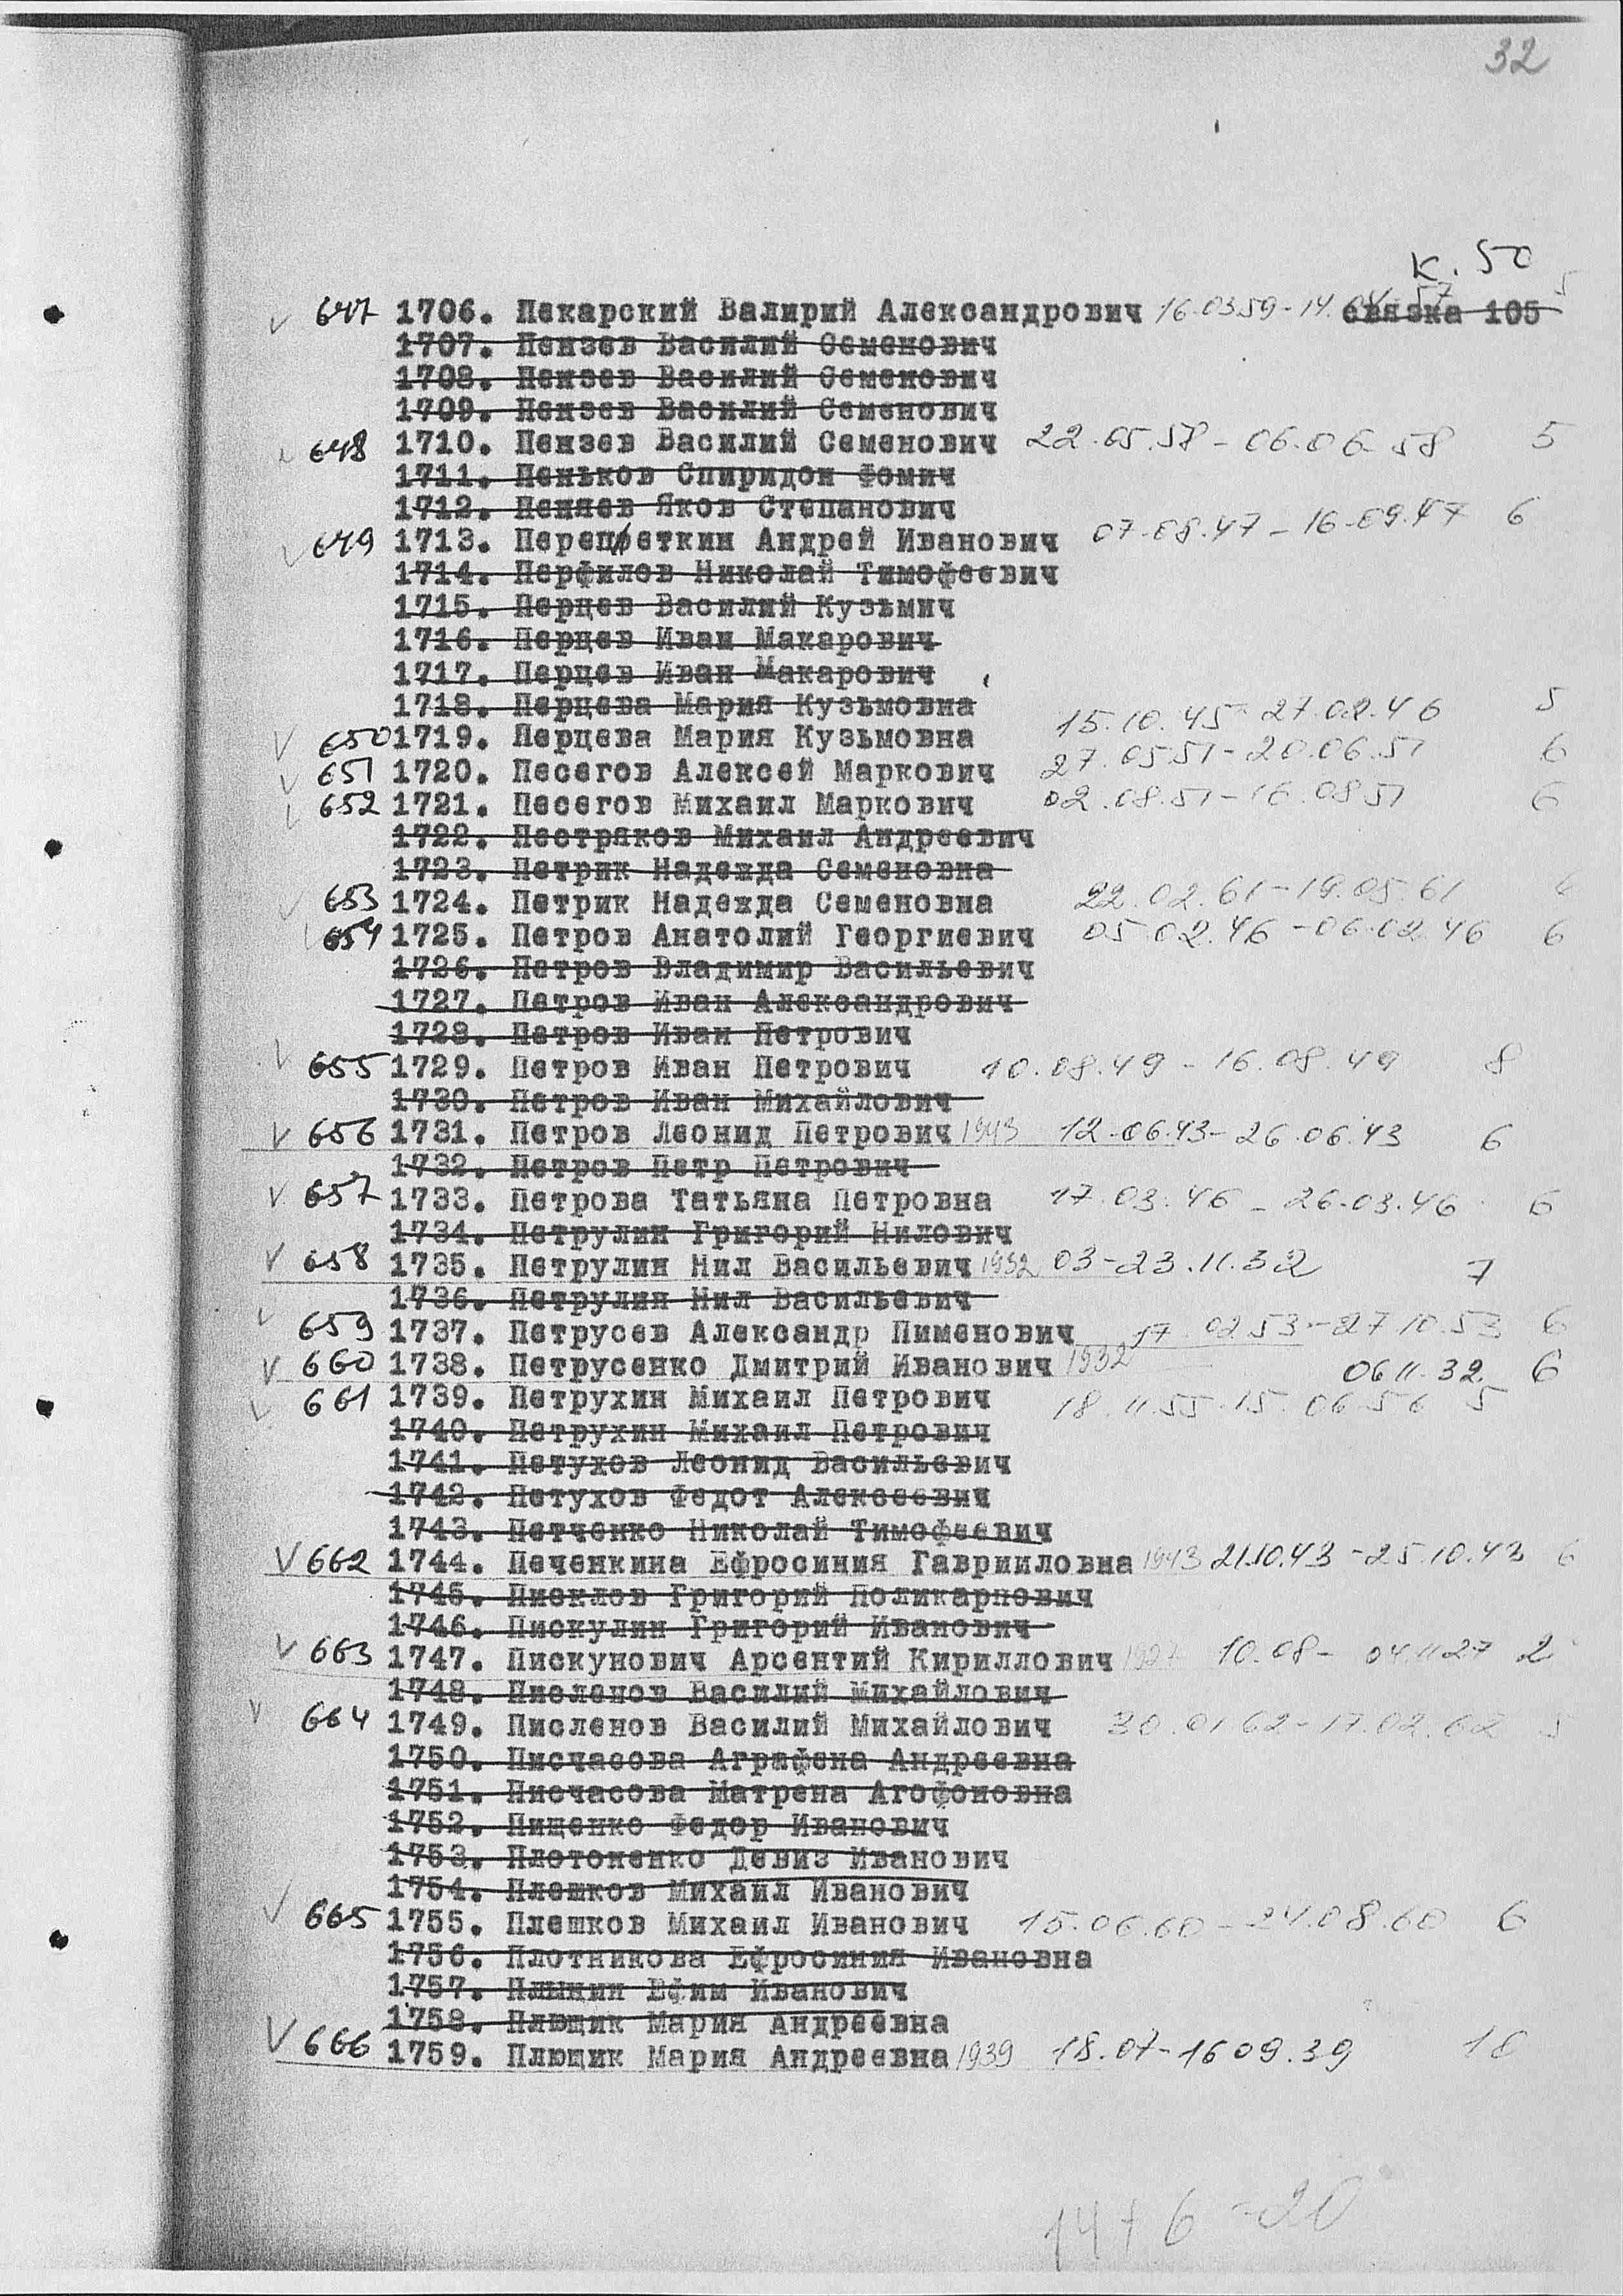 32
к. 50
647 1706. Пекарский Валирий Александрович 16.03.59-14.04.57 связка 105 5
1707. Пензев Василий Семенович
1708. Пензев Василий Семенович
1709. Пензев Василий Семенович
648 1710. Пензев Василий Семенович 22.05.58 - 06.06.58 5
1711. Пеньков Спиридон Фомич
1712. Пеняев Яков Степанович
649 1713. Перепеткин Андрей Иванович 07.08.47 - 16.09.47 6
1714. Перфилов Николай Тимофеевич
1715. Перцев Василий Кузьмич
1716. Перцев Иван Макарович
1717. Перцев Иван Макарович
1718. Перцева Мария Кузьмовна
650 1719. Перцева Мария Кузьмовна 15.10.45-27.02.46 5
651 1720. Песегов Алексей Маркович 27.05.51-20.06.51 6
652 1721. Песегов Михаил Маркович 02.08.51-16.08.51 6
1722. Пестряков Михаил Андреевич
1723. Петрик Надежда Семеновна
653 1724. Петрик Надежда Семеновна 22.02.61-19.05.61 6
654 1725. Петров Анатолий Георгиевич 05.02.46-06.02.46 6
1726. Петров Владимир Васильевич
1727. Петров Иван Александрович
1728. Петров Иван Петрович
655 1729. Петров Иван Петрович 10.08.49 - 16.08.49 8
1730. Петров Иван Михайлович
656 1731. Петров Леонид Петрович 1943 12-06.43-26.06.43 6
1732. Петров Петр Петрович
657 1733. Петрова Татьяна Петровна 17.03.46 - 26.03.46 6
1734. Петрулин Григорий Нилович
658 1735. Петрулин Нил Васильевич 1932 03-23.11.32 7
1736. Петрулин Нил Васильевич
659 1737. Петрусев Александр Пименович 17.02.53-27.10.53 6
660 1738. Петрусенко Дмитрий Иванович 1932 06.11.32. 6
661 1739. Петрухин Михаил Петрович 18.11.55-15.06.56 5
1740. Петрухин Михаил Петрович
1741. Петухов Леонид Васильевич
1742. Петухов Федот Алексеевич
1743. Петченко Николай Тимофеевич
662 1744. Печенкина Ефросиния Гаврииловна 1943 21.10.43-25.10.43 6
1745. Писклов Григорий Поликарпович
1746. Пискулин Григорий Иванович
663 1747. Пискунович Арсентий Кириллович 1927 10.08- 04.11.27 2
1748. Писленов Василий Михайлович
664 1749. Писленов Василий Михайлович 30.01.62-17.02.62 5
1750. Писчасова Аграфена Андреевна
1751. Писчасова Матрена Агофоновна
1752. Пищенко Федор Иванович
1753. Плотоненко Девиз Иванович
1754. Плешков Михаил Иванович
665 1755. Плешков Михаил Иванович 15.06.60-24.08.60 6
1756. Плотникова Ефросиния Ивановна
1757. Плынин Ефим Иванович
1758. Плющик Мария Андреевна
666 1759. Плющик Мария Андреевна 1939 18.07-16 09.39 18
14+6 -20